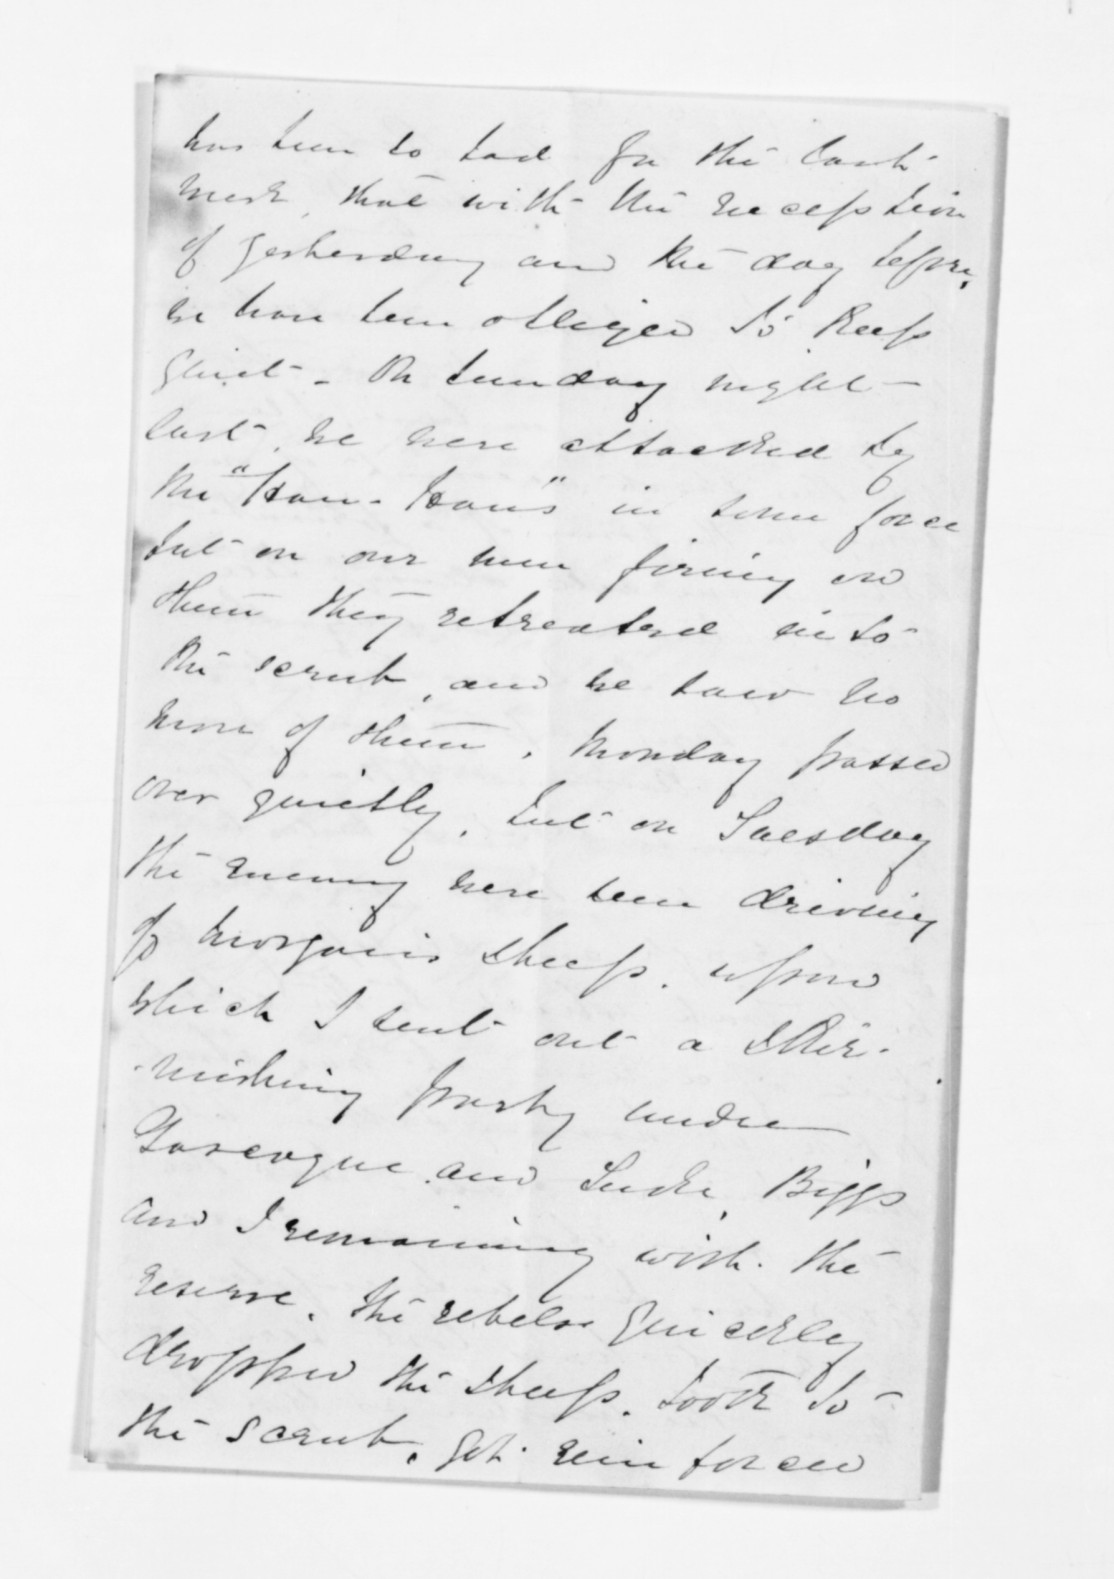 has been so bad for the last
week, that with the exception
of yesterday and the day before,
we have been obliged to keep
quiet - On Sunday night
last, we were attacked by
the "Hau-Haus" in some force
but on our men firing on
them they retreated into
the scrub, and we saw no
more of them. Monday passed
over quietly, but on Tuesday
the enemy were seen driving
off Morgan's sheep. upon
which I sent out a skir-
-mishing party under
Gascoyne and Tuke, Biggs
and I remaining with the
reserve. the rebels quickly
dropped the sheep. took to
the scrub, got reinforced